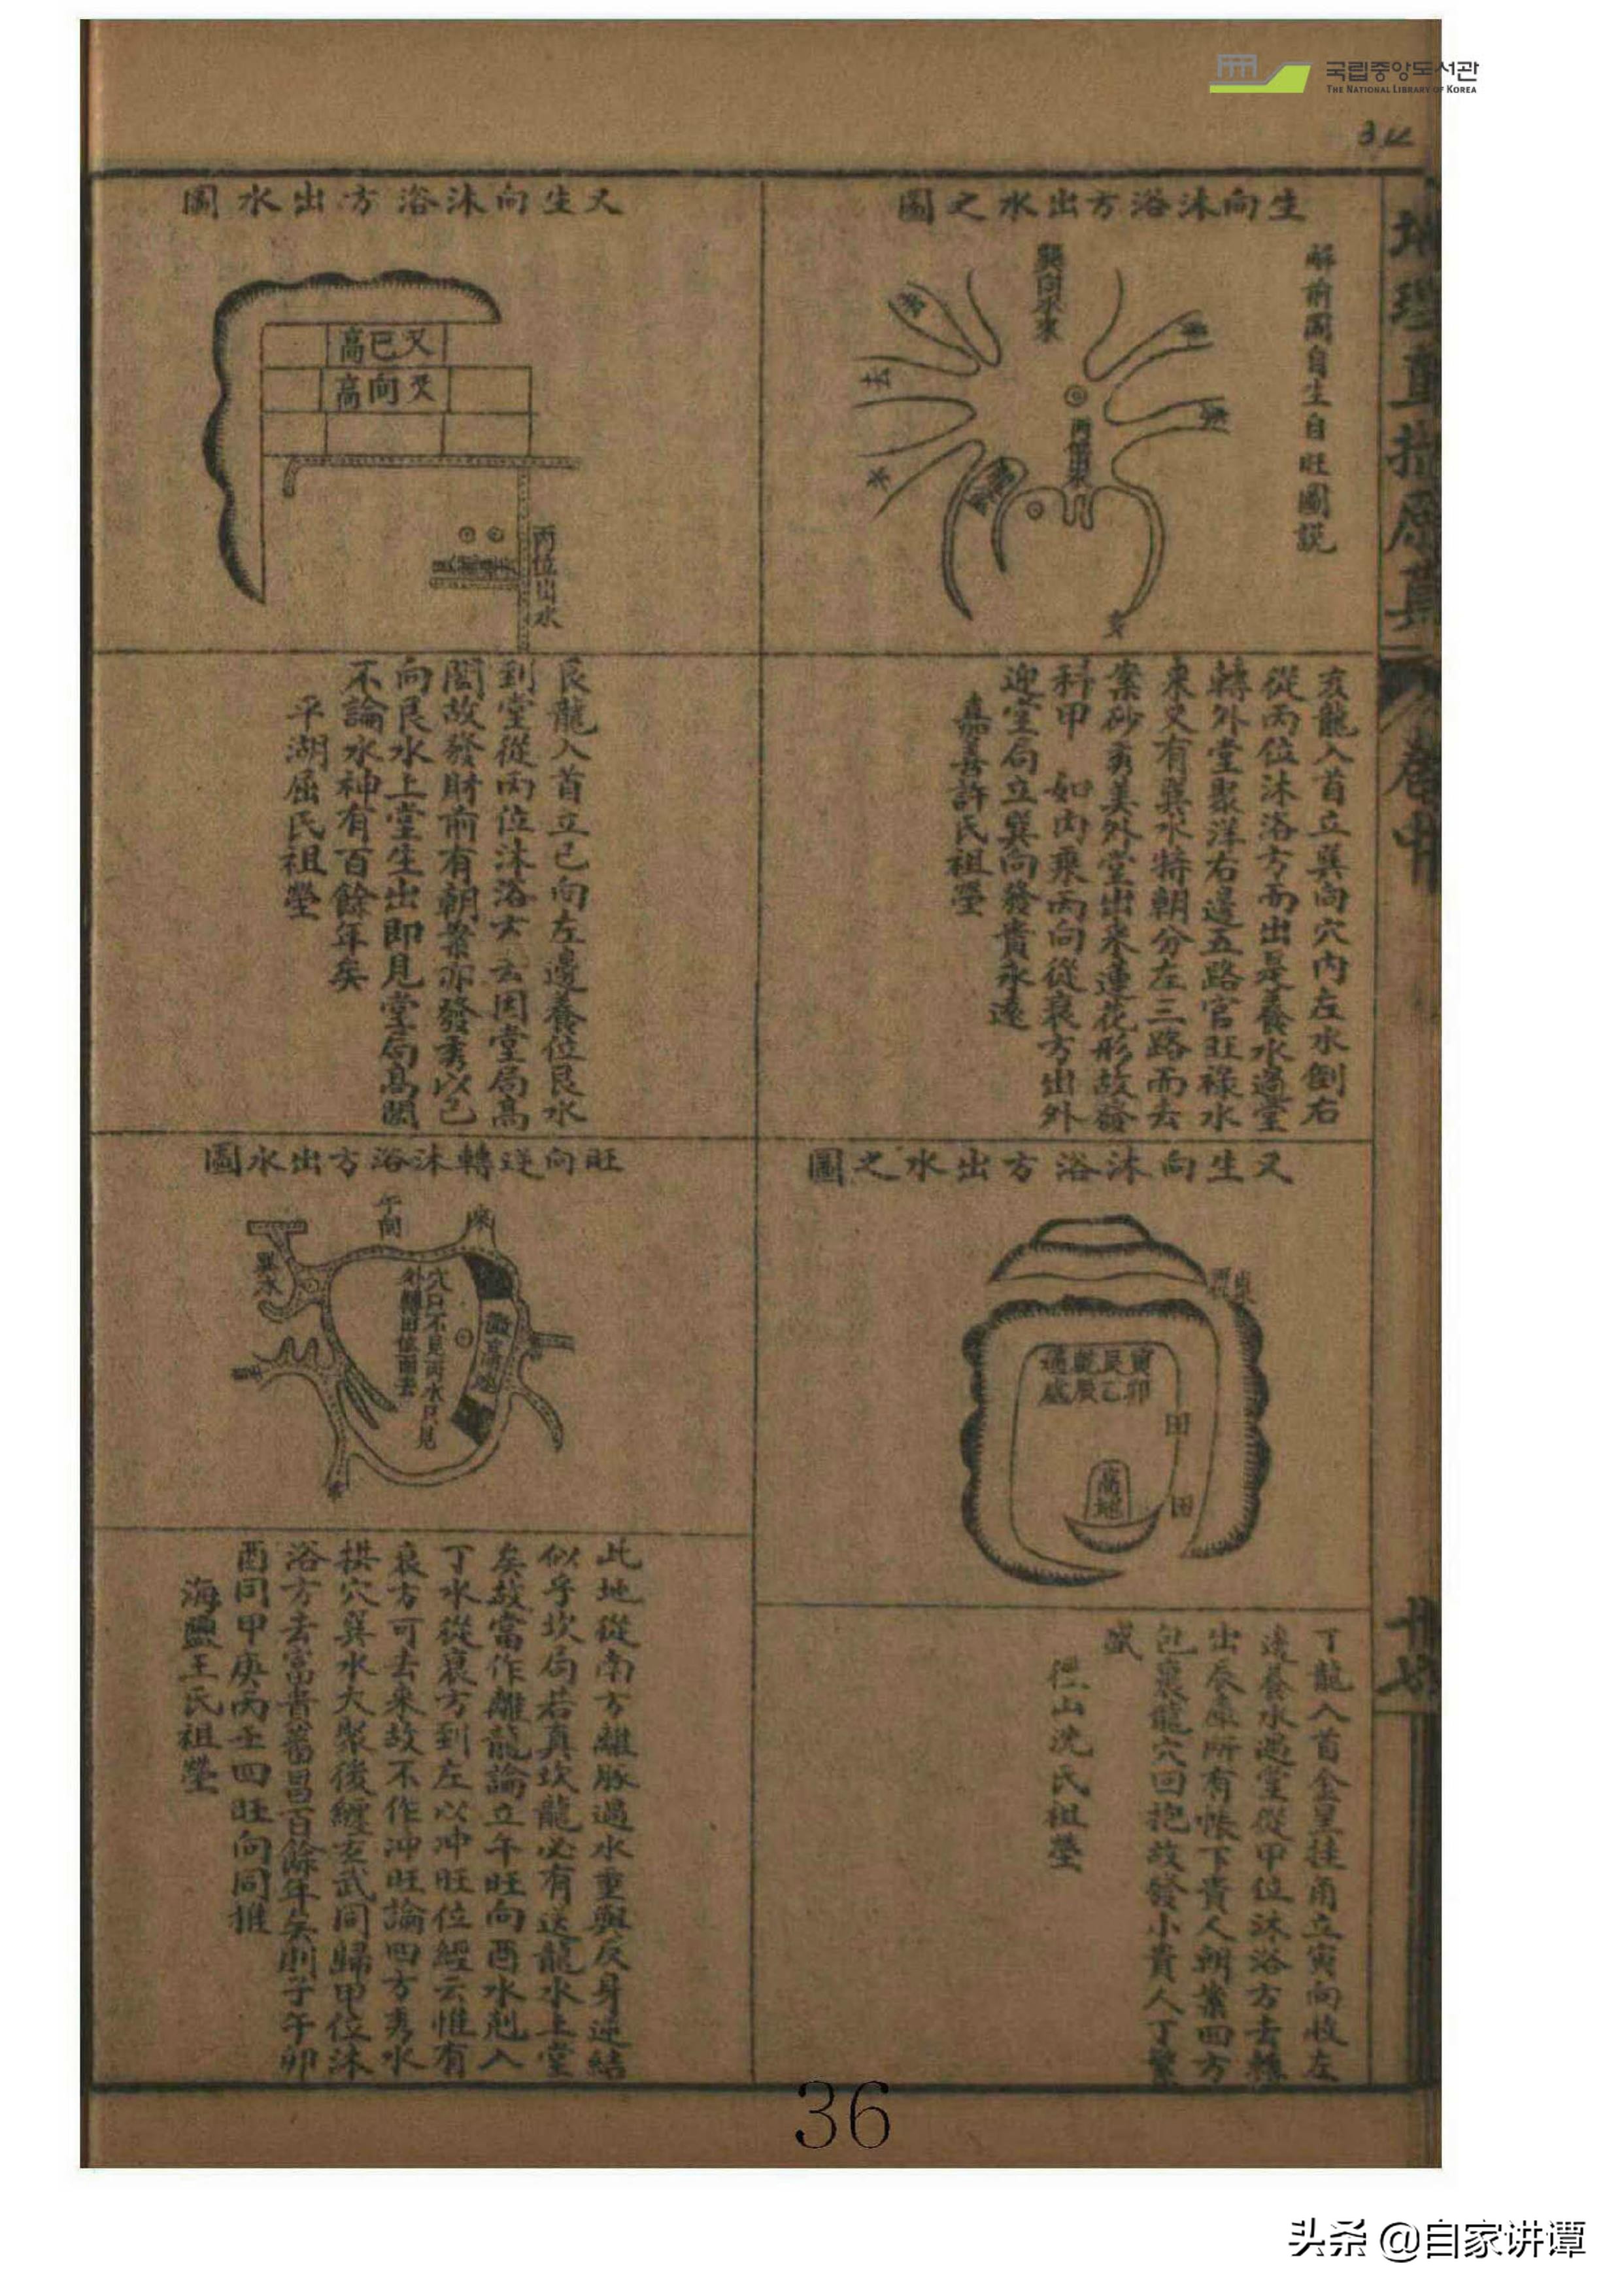 국립중앙도서관
THE NATIONAL LIBRARY OF KOREA
34
地理直指原真
卷中
廿七
生向沐浴方出水之圖
解前圖自生自旺圖說
巽向水來
去
水
亥
亥龍入首立巽向穴內左水倒右
從丙位沐浴方而出是養水過堂
轉外堂聚洋右邊五路官旺祿水
來又有巽水特朝分左三路而去
案砂秀美外堂出來蓮花形故發
科甲 如內乘丙向從衰方出外
迎堂局立巽向發貴永遠
嘉善許氏祖塋
又生向沐浴方出水圖
又巳高
又向高
丙位出水
艮龍入首立巳向左邊養位艮水
到堂從丙位沐浴方去因堂局高
闊故發財前有朝案亦發秀以巳
向艮水上堂生出即見堂局高闊
不論水神有百餘年矣
平湖屈氏祖塋
又生向沐浴方出水之圖
寅艮
卯乙辰
田
田
高地
丁龍入首金星挂角立寅向收左
邊養水過堂從甲位沐浴方去轉
出辰庫所有帳下貴人朝案四方
包裹龍穴回抱故發小貴人丁繁
盛
仁山沈氏祖塋
旺向逆轉沐浴方出水圖
午向
巽水
穴口不見兩水只見
此地從南方離脈過水重興反身逆結
似乎坎局若真坎龍必有送龍水上堂
矣故當作離龍論立午旺向酉水剋入
丁水從衰方到左以冲旺位經云惟有
衰方可去來故不作冲旺論四方秀水
拱穴巽水大聚後纏玄武同歸甲位沐
浴方去富貴蕃昌百餘年矣則子午卯
酉同甲庚丙壬四旺向同推
海鹽王氏祖塋
36
头条 @自家讲谭